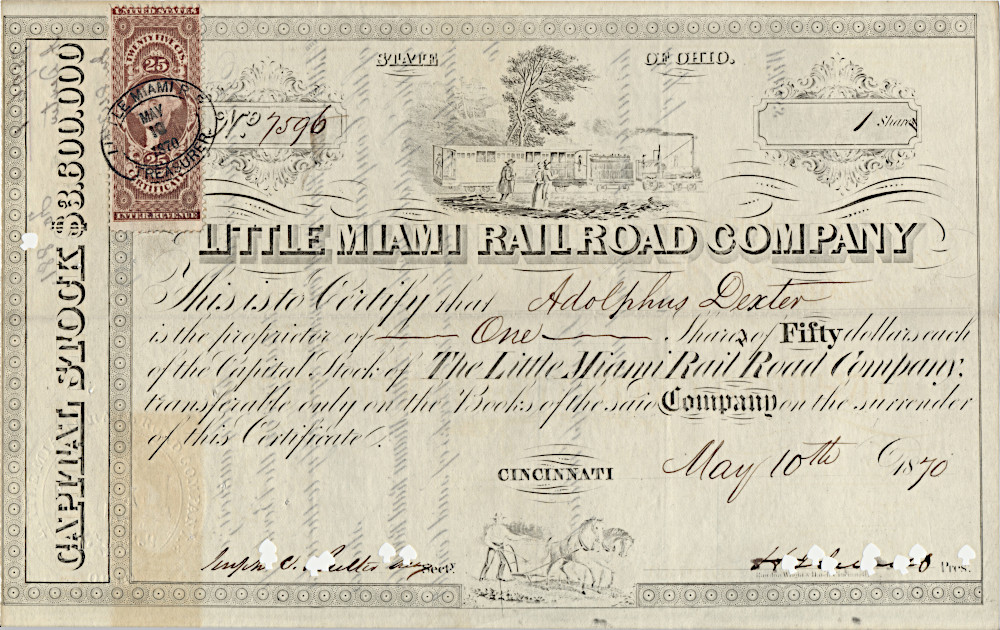 UNITED STATES
TWENTY FIVE CTS.
25
LITTLE MIAMI R. R.
MAY
1870
TREASURER
25
CERTIFICATE
INTER. REVENUE
CAPITAL STOCK $3.800.000
STATE OF OHIO.
No 7596
1 Share
LITTLE MIAMI RAIL ROAD COMPANY
This is to Certify that Adolphus Dexter
is the proprietor of One Share of Fifty dollars each
of the Capital Stock of The Little Miami Rail Road Company.
transferable only on the Books of the said Company on the surrender
of this Certificate.
CINCINNATI May 10th 1870
Secy.
Pres.